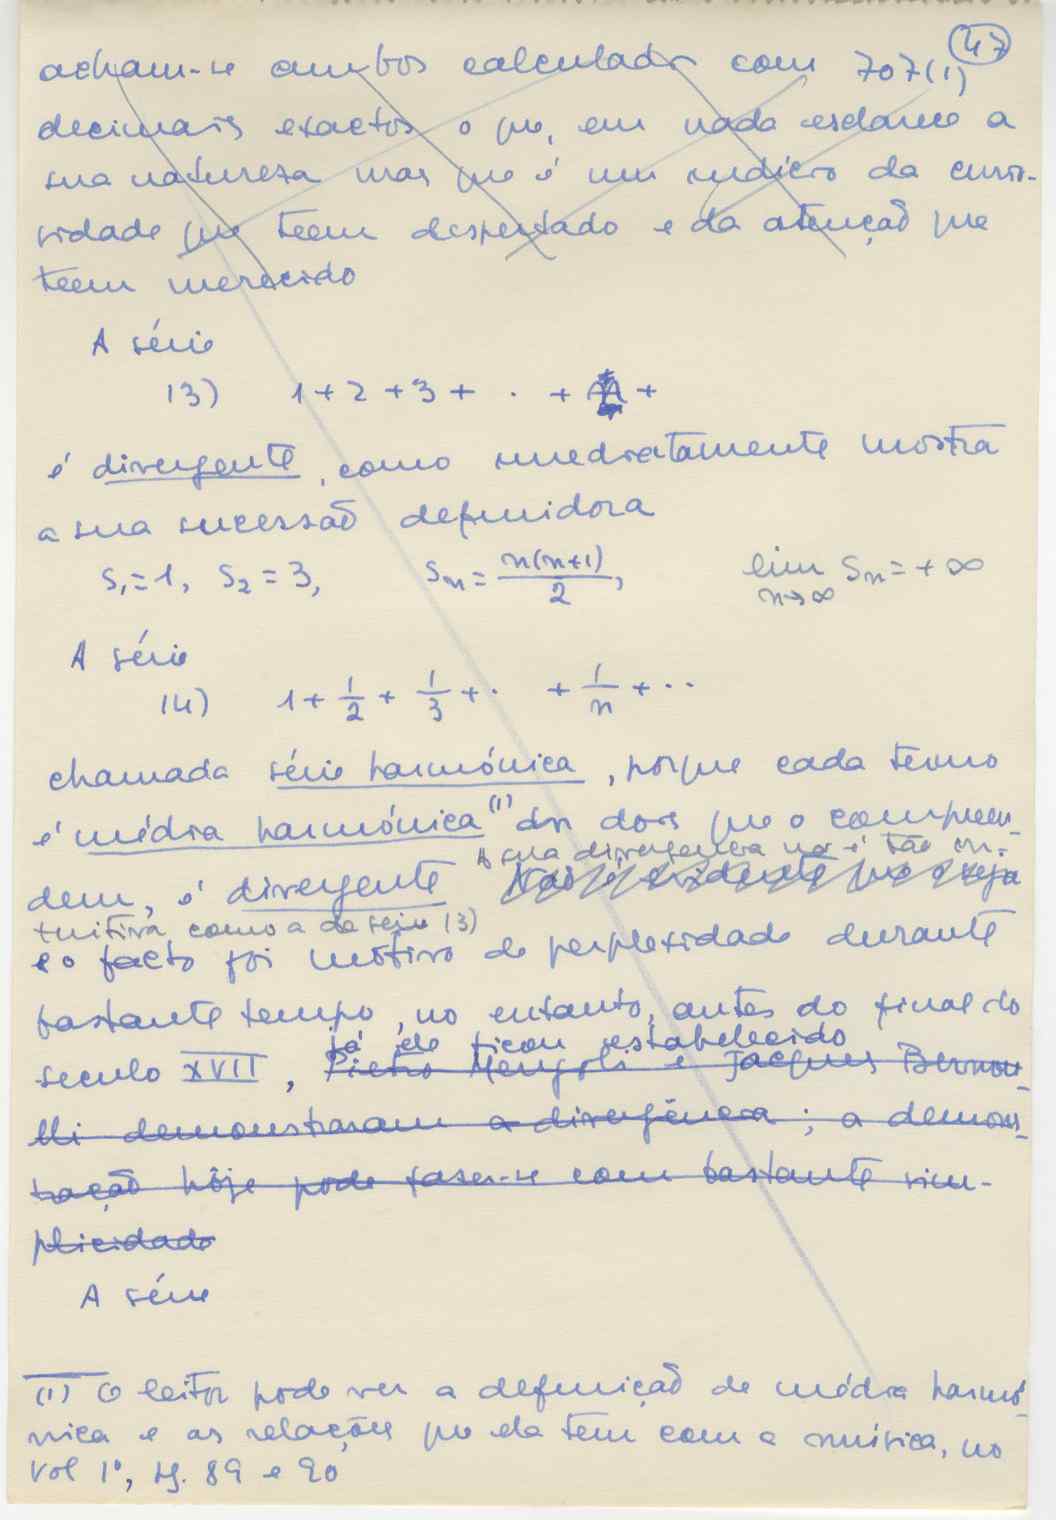 47
acham-se ambos calculados com 707(1)
decimais exactos o que, em nada esclarece a
sua natureza mas que é um indício da curio-
sidade que teem despertado e da atenção que
teem merecido
A série
13) 1 + 2 + 3 + · · + n +
é divergente, como imediatamente mostra
a sua sucessão definidora
S₁=1, S₂=3, Sₙ = n(n+1)/2, lim n→∞ Sₙ = +∞
A série
14) 1 + 1/2 + 1/3 + · + 1/n + ··
chamada série harmónica, porque cada termo
é média harmónica (1) dos dois que o compreen-
A sua divergencia não é tão in-
dem, é divergente Não é evidente que o seja
tuitiva como a da serie 13)
e o facto foi motivo de perplexidade durante
bastante tempo, no entanto, antes do final do
já ele ficou estabelecido
seculo XVII, Pietro Mengoli e Jacques Bernou-
lli demonstraram a divergência; a demons-
tração hôje pode fazer-se com bastante sim-
plicidade
A série
(1) O leitor pode ver a definição de média harmó-
nica e as relações que ela tem com a música, no
vol 1º, pg. 89 e 90